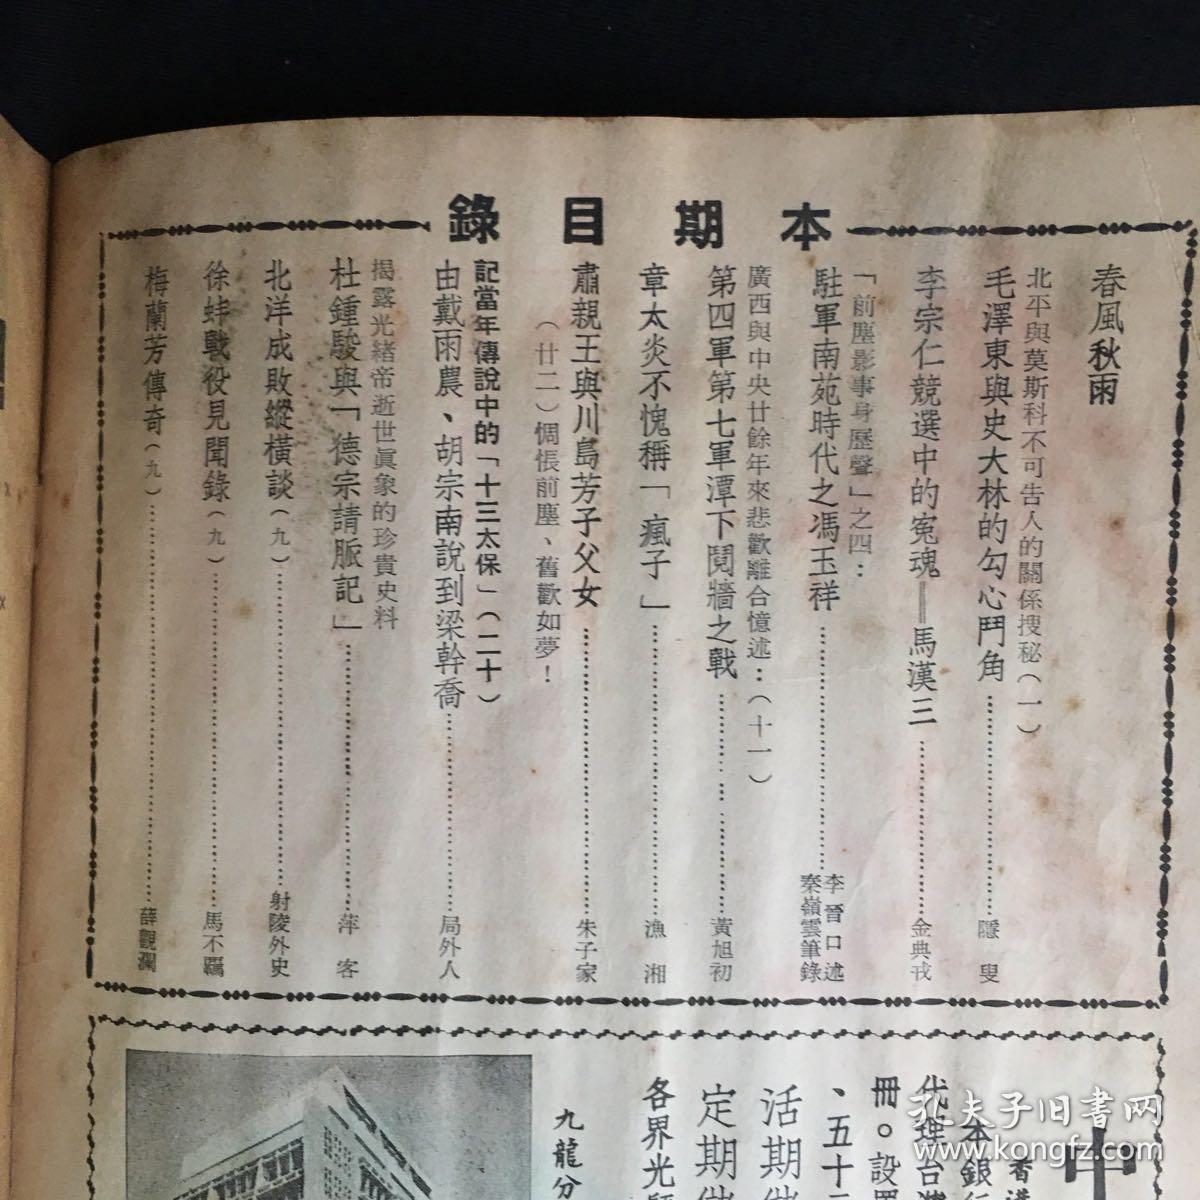 本期目錄
春風秋雨
北平與莫斯科不可告人的關係搜秘(一)
毛澤東與史大林的勾心鬥角………隱叟
李宗仁競選中的寃魂＝馬漢三………金典戎
「前塵影事身歷聲」之四：
駐軍南苑時代之馮玉祥………李晉口述
秦嶺雲筆錄
廣西與中央廿餘年來悲歡離合憶述：(十一)
第四軍第七軍潭下鬩牆之戰………黃旭初
章太炎不愧稱「瘋子」………漁湘
肅親王與川島芳子父女………朱子家
(廿二)惆悵前塵、舊歡如夢！
記當年傳說中的「十三太保」(二十)
由戴雨農、胡宗南說到梁幹喬………局外人
揭露光緒帝逝世眞象的珍貴史料
杜鍾駿與「德宗請脈記」………萍客
北洋成敗縱橫談(九)………射陵外史
徐蚌戰役見聞錄(九)………馬不羈
梅蘭芳傳奇(九)………薛觀瀾
中
香港
本銀行
代理台灣
冊。設置
、五十二
活期儲
定期儲
各界光顧
九龍分
孔夫子旧书网
www.kongfz.com